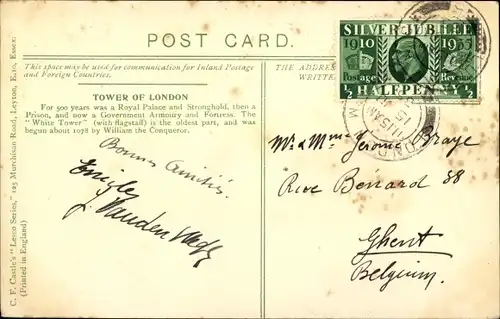 POST CARD.
This space may be used for communication for Inland Postage
and Foreign Countries.
THE ADDRE
WRITTE
TOWER OF LONDON
For 500 years was a Royal Palace and Stronghold, then a
Prison, and now a Government Armoury and Fortress. The
"White Tower" (with flagstaff) is the oldest part, and was
begun about 1078 by William the Conqueror.
C. F. Castle's "Lesco Series," 125 Murchison Road, Leyton, E.10, Essex.
(Printed in England)
SILVER JUBILEE
1910 1935
Postage Revenue
½ HALFPENNY ½
Bonnes Amitiés.
J. Vanden
Mr & Mme Jerome Braye
Rue Benard 88
Ghent
Belgium.